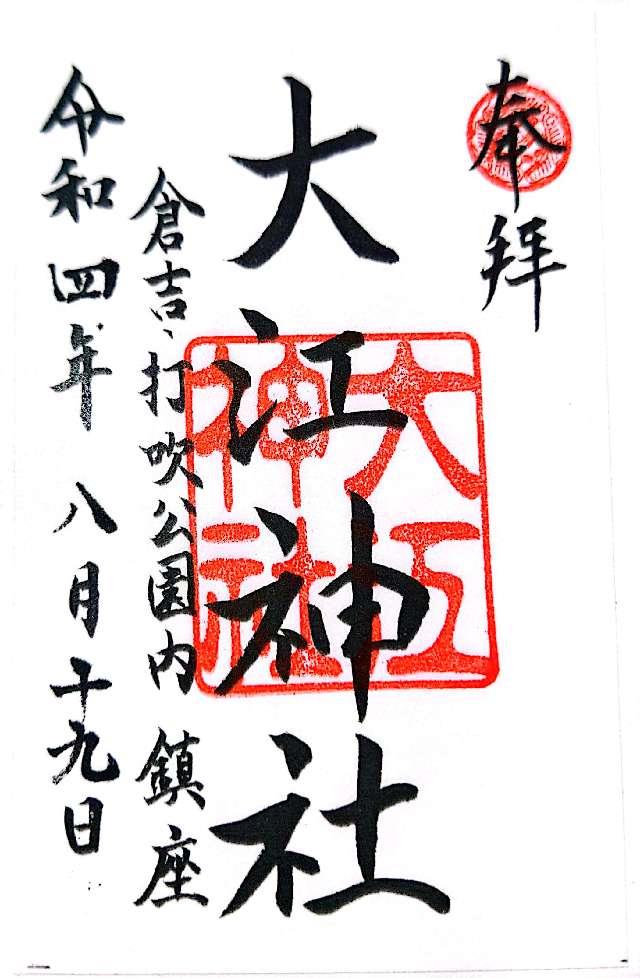 奉拝
大江神社
大江
神社
倉吉・打吹公園内 鎮座
令和四年 八月十九日